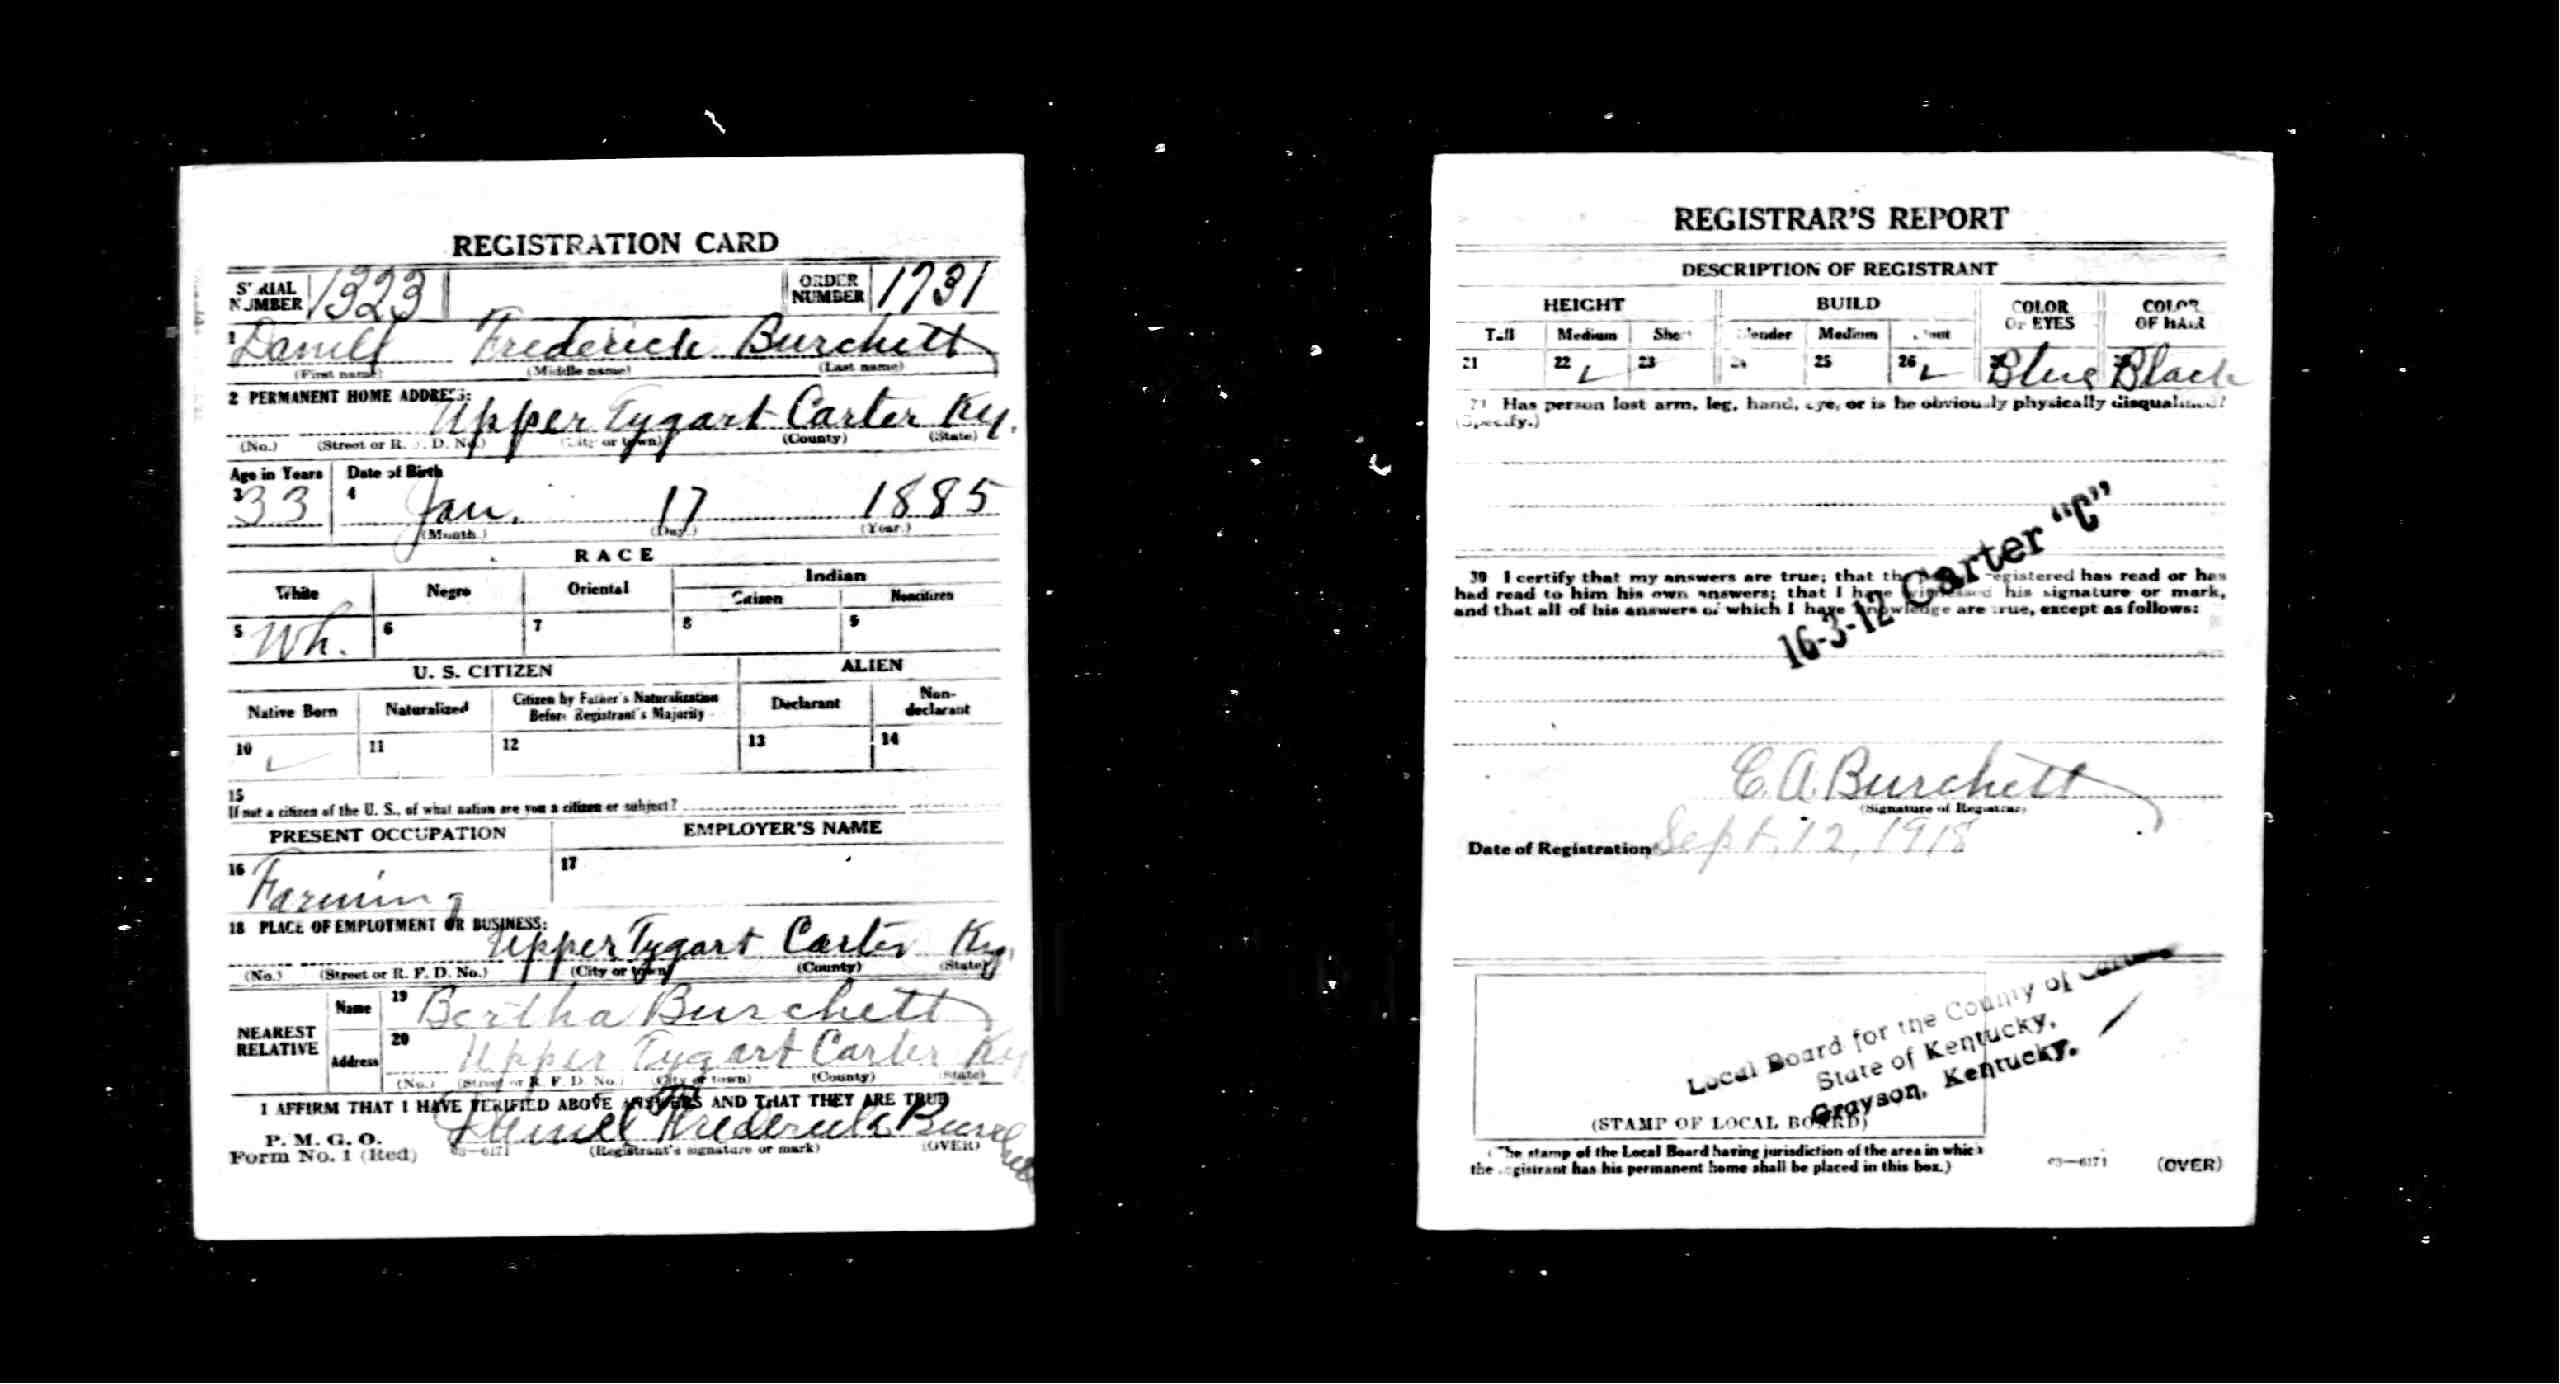 REGISTRATION CARD
SERIAL NUMBER 1323 ORDER NUMBER 1731
1 Daniel Frederick Burchett
(First name) (Middle name) (Last name)
2 PERMANENT HOME ADDRESS:
Upper Tygart Carter Ky.
(No.) (Street or R. F. D. No.) (City or town) (County) (State)
Age in Years Date of Birth
3 33 4 Jan. 17 1885
(Month.) (Day.) (Year.)
RACE
White Negro Oriental Indian
Citizen Noncitizen
5 Wh. 6 7 8 9
U. S. CITIZEN ALIEN
Native Born Naturalized Citizen by Father's Naturalization Before Registrant's Majority Declarant Non-declarant
10 ✓ 11 12 13 14
15
If not a citizen of the U. S., of what nation are you a citizen or subject?
PRESENT OCCUPATION EMPLOYER'S NAME
16 Farming 17
18 PLACE OF EMPLOYMENT OR BUSINESS:
Upper Tygart Carter Ky.
(No.) (Street or R. F. D. No.) (City or town) (County) (State)
NEAREST RELATIVE Name 19 Bertha Burchett
Address 20 Upper Tygart Carter Ky
(No.) (Street or R. F. D. No.) (City or town) (County) (State)
I AFFIRM THAT I HAVE VERIFIED ABOVE ANSWERS AND THAT THEY ARE TRUE
P. M. G. O.
Form No. 1 (Red) 03—6171 Frederick Burchett
(Registrant's signature or mark) (OVER)
REGISTRAR'S REPORT
DESCRIPTION OF REGISTRANT
HEIGHT BUILD COLOR OF EYES COLOR OF HAIR
Tall Medium Short Slender Medium Stout
21 22 ✓ 23 24 25 26 ✓ Blue Black
29 Has person lost arm, leg, hand, eye, or is he obviously physically disqualified?
(Specify.)
30 I certify that my answers are true; that the person registered has read or has
had read to him his own answers; that I have witnessed his signature or mark,
and that all of his answers of which I have knowledge are true, except as follows:
16-3-12 Carter "C"
E. A. Burchett
(Signature of Registrar)
Date of Registration Sept. 12, 1918
Local Board for the County of Carter
State of Kentucky,
Grayson, Kentucky.
(STAMP OF LOCAL BOARD)
(The stamp of the Local Board having jurisdiction of the area in which
the registrant has his permanent home shall be placed in this box.)
03—6171 (OVER)